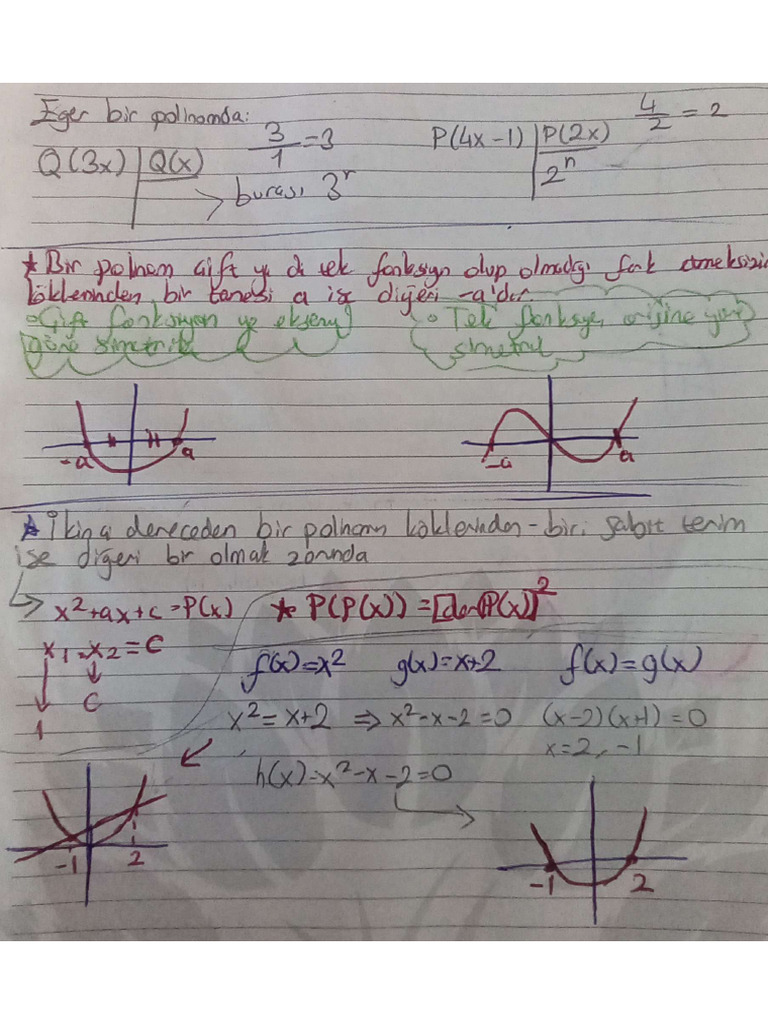 Eger bir polinomda:
Q(3x) | Q(x) 3/1 = 3
burası 3^n
P(4x-1) | P(2x) 4/2 = 2
2^n
★ Bir polnom çift ya di tek fonksiyn olup olmadığı fark etmeksizin
köklerinden bir tanesi a ise diğeri -a'dır.
○ Çift fonksiyon y eksenine
göre simetrik
○ Tek fonksiyon orijine göre
simetrik
-a a
-a a
★ İkinci dereceden bir polnom köklerinden - biri sabit terim
ise diğeri bir olmak zorunda
x²+ax+c=P(x) ★ P(P(x)) = [der(P(x)]²
x₁.x₂=c
1 c
f(x)=x² g(x)=x+2 f(x)=g(x)
x²=x+2 ⇒ x²-x-2=0 (x-2)(x+1)=0
x=2, -1
h(x)=x²-x-2=0
-1 2
-1 2